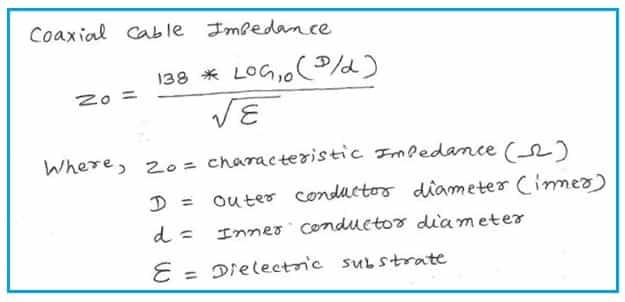 Coaxial Cable Impedance
Zo = 138 * LOG₁₀(D/d) / √ε
Where, Zo = characteristic Impedance (Ω)
D = outer conductor diameter (inner)
d = Inner conductor diameter
ε = Dielectric substrate